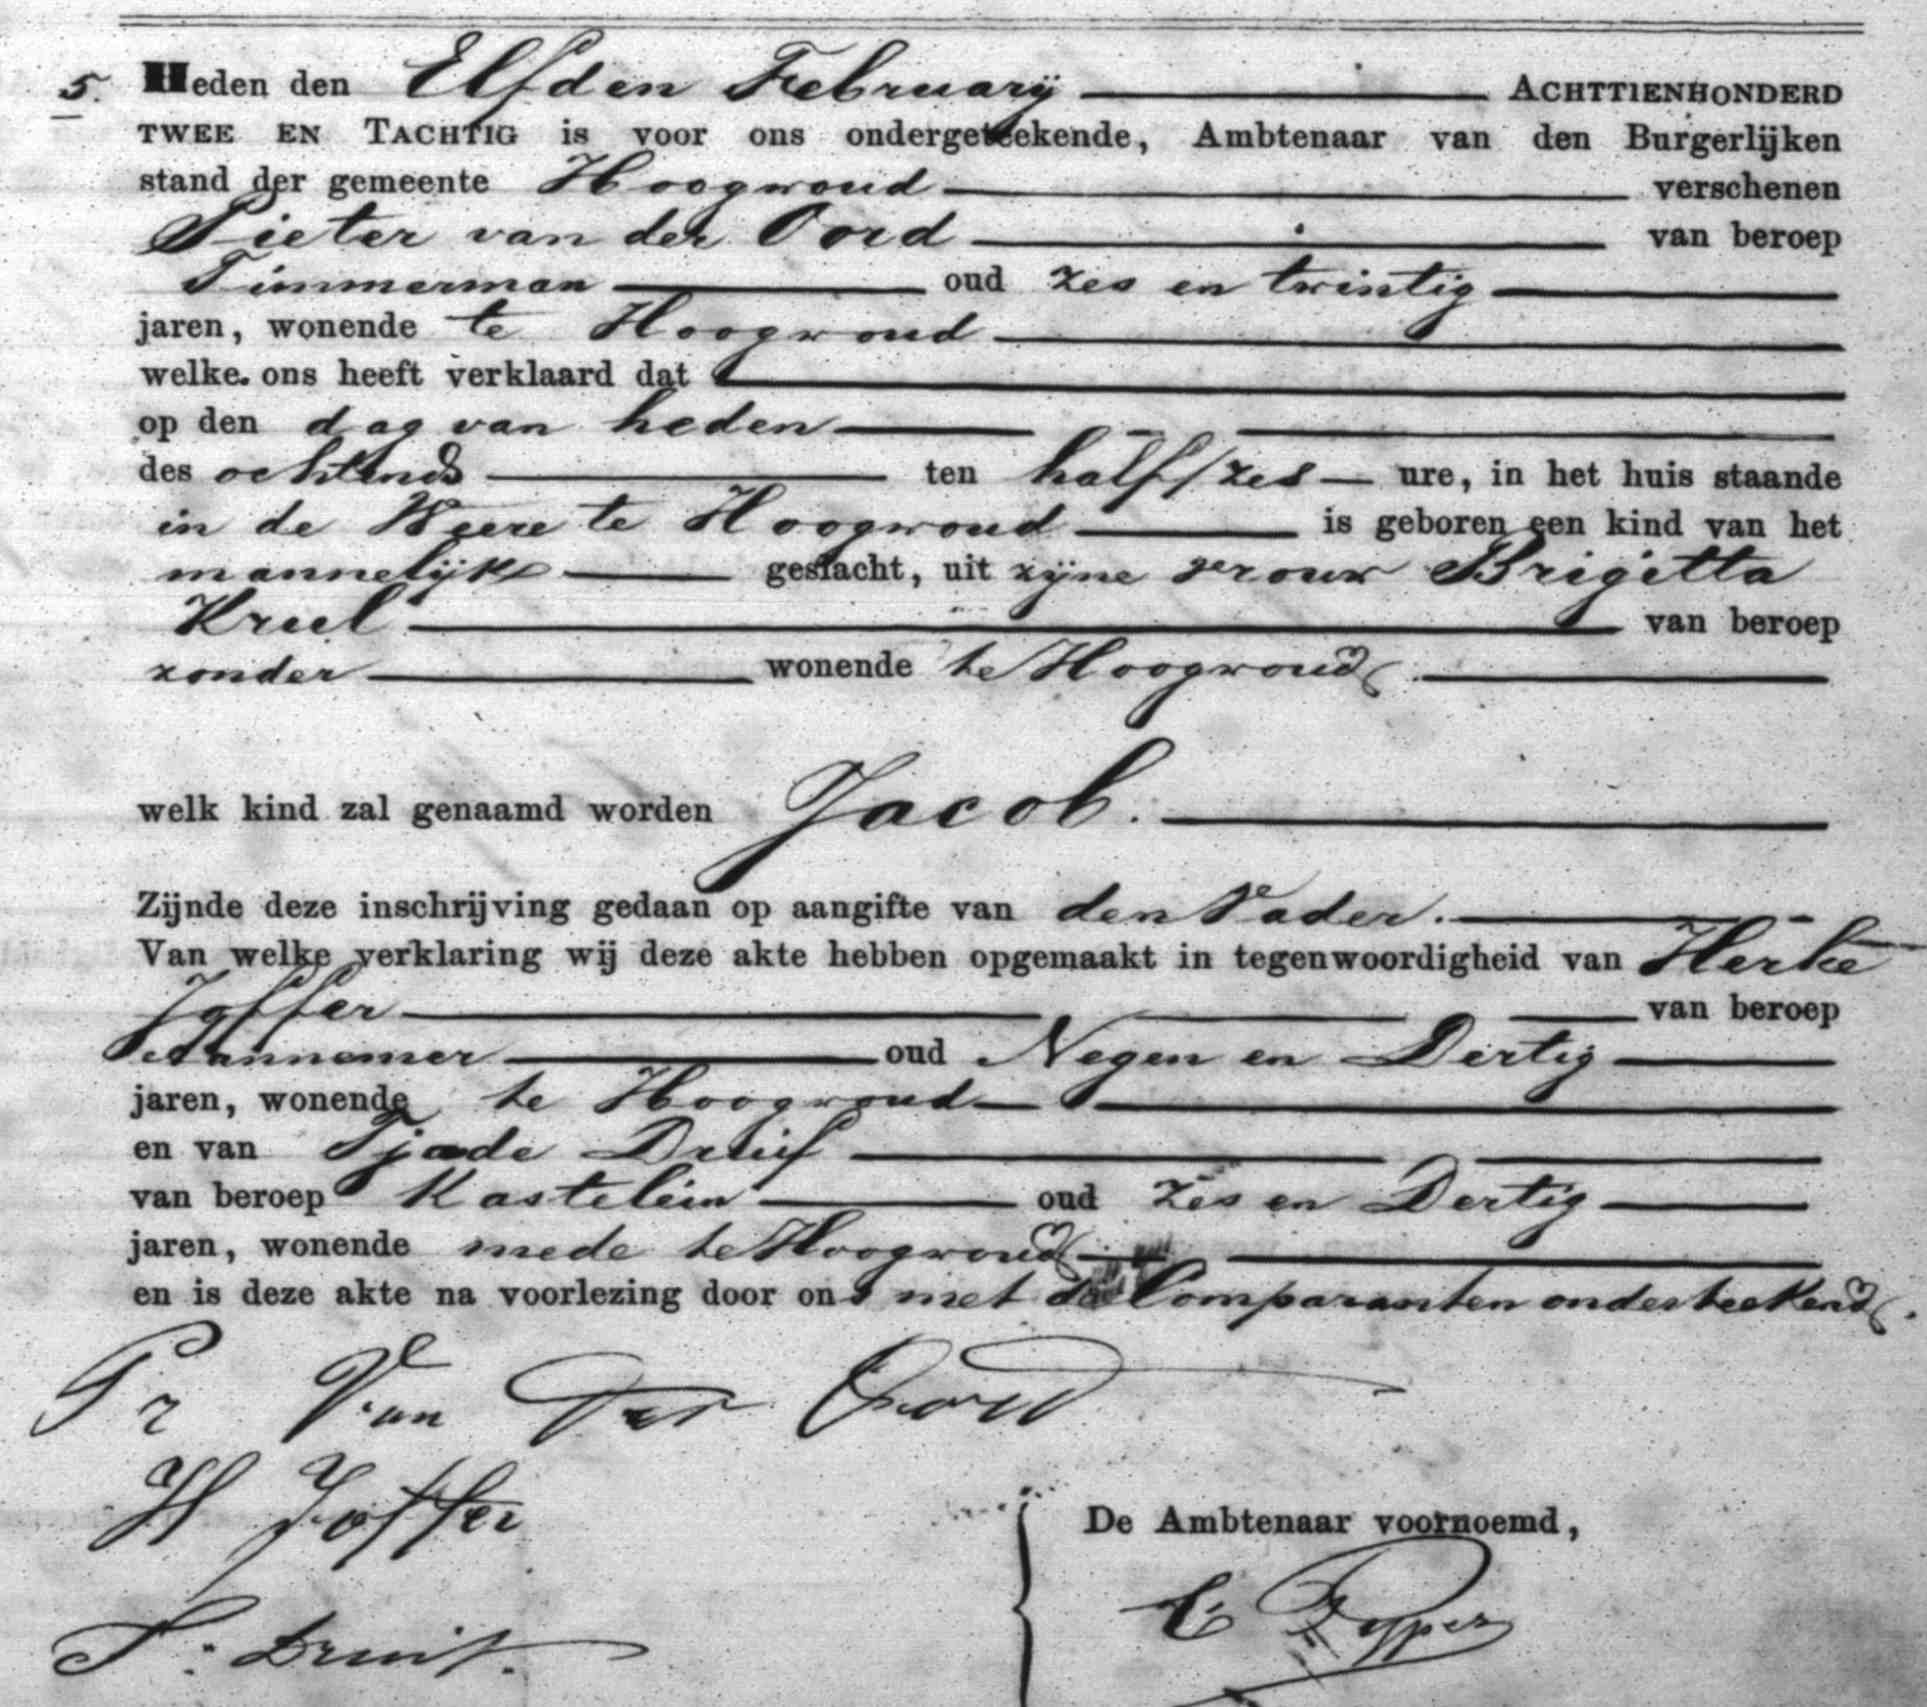 5. Heden den Elfden February ACHTTIENHONDERD
TWEE EN TACHTIG is voor ons ondergeteekende, Ambtenaar van den Burgerlijken
stand der gemeente Hoogwoud verschenen
Pieter van der Oord van beroep
Timmerman oud zes en twintig
jaren, wonende te Hoogwoud
welke ons heeft verklaard dat
op den dag van heden
des ochtends ten half/zes ure, in het huis staande
in de Weere te Hoogwoud is geboren een kind van het
mannelijk geslacht, uit zijne vrouw Brigitta
Kreel van beroep
zonder wonende te Hoogwoud
welk kind zal genaamd worden Jacob.
Zijnde deze inschrijving gedaan op aangifte van den Vader.
Van welke verklaring wij deze akte hebben opgemaakt in tegenwoordigheid van Herke
Joffer van beroep
Aannemer oud Negen en Dertig
jaren, wonende te Hoogwoud
en van Tjade Druif
van beroep Kastelein oud zes en Dertig
jaren, wonende mede te Hoogwoud
en is deze akte na voorlezing door ons met de Comparanten onderteekend.
Pr Van Der Oord
H Joffer
T. Druif.
De Ambtenaar voornoemd,